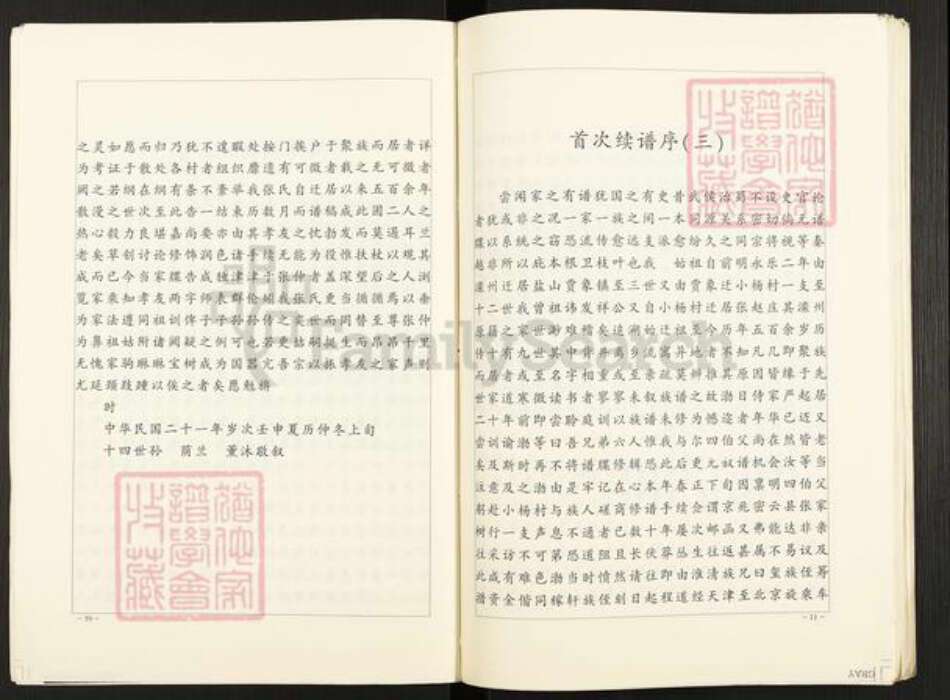 之灵如愿而归乃犹不遑暇处按门挨户于聚族而居者详
为考证于散处各村者不织靡遗有可微者载之无可微者
阙之若纲在纲有条不紊举我张氏自迁居以来五百余年
散漫之世次至此告一结束历数月而谱稿成此固二人之
热心毅力良堪嘉尚要亦由其孝友之忱勃发而莫遏耳兰
老矣草创讨论修饰润色诸手续无能为役惟扶杖以观其
成而已今当家牒告成独津于张仲者盖深望后之人浏
览家乘知孝友两字师表群伦媲我张氏更当循循焉以余
为家法遵同祖训俾子子孙孙传之奕世而罔替至尊张仲
为鼻祖姑附诸阙疑之例可也若史姑嗣挺生而昂昂千里
无愧家驹琳琳宝树成为国器完吾宗以振孝友之家声则
尤延颈跂踵以俟之者矣愿勉旃
时
中华民国二十一年岁次壬申夏历仲冬上旬
十四世孙 荫兰 薰沐敬叙
首次续谱序(三)
尝闻家之有谱犹国之有史昔武侯治蜀不设史官论
者犹或非之况一家一族之间一本同源关系密切倘无谱
牒以系统之窃恐流传愈远支派愈纷久之同宗将视等秦
越非所以庇本根卫枝叶也我 始祖自前明永乐二年由
滦州迁居盐山贾象镇至三世又由贾象迁小杨村一支至
十二世我曾祖伟发祥公又自小杨村迁居张赵庄其滦州
原籍之家世渺难稽矣追溯始迁祖至今历年五百余岁历
传十有九世其中背井离乡流寓异地者不知凡几即聚族
而居者或至名字相重或至亲疏莫辨推其原因皆缘于先
世家道寒微读书者寥寥未叙族谱之故渤日侍家严起居
二十年前即尝聆庭训以族谱未修为憾迩者年华已迈又
尝训谕渤等曰吾兄弟六人惟我与尔四伯父尚在然皆老
矣及斯时再不将谱牒修辑恐此后更尤奴谱机会汝等当
注意及之渤由是牢记在心本年春正下旬因禀明四伯父
躬赴小杨村与族人磋商修谱手续佥谓京兆密云县张家
树行一支声息不通者已数十年屡次邮函又弗能达非亲
往采访不可第恐道阻且长伏莽丛生往返甚属不易议及
此咸有难色渤当时愤然请往即由淮清族兄曰玺族侄筹
措资金偕同稼轩族侄刻日起程道经天津至北京旋乘车
- 11 -
FamilySearch